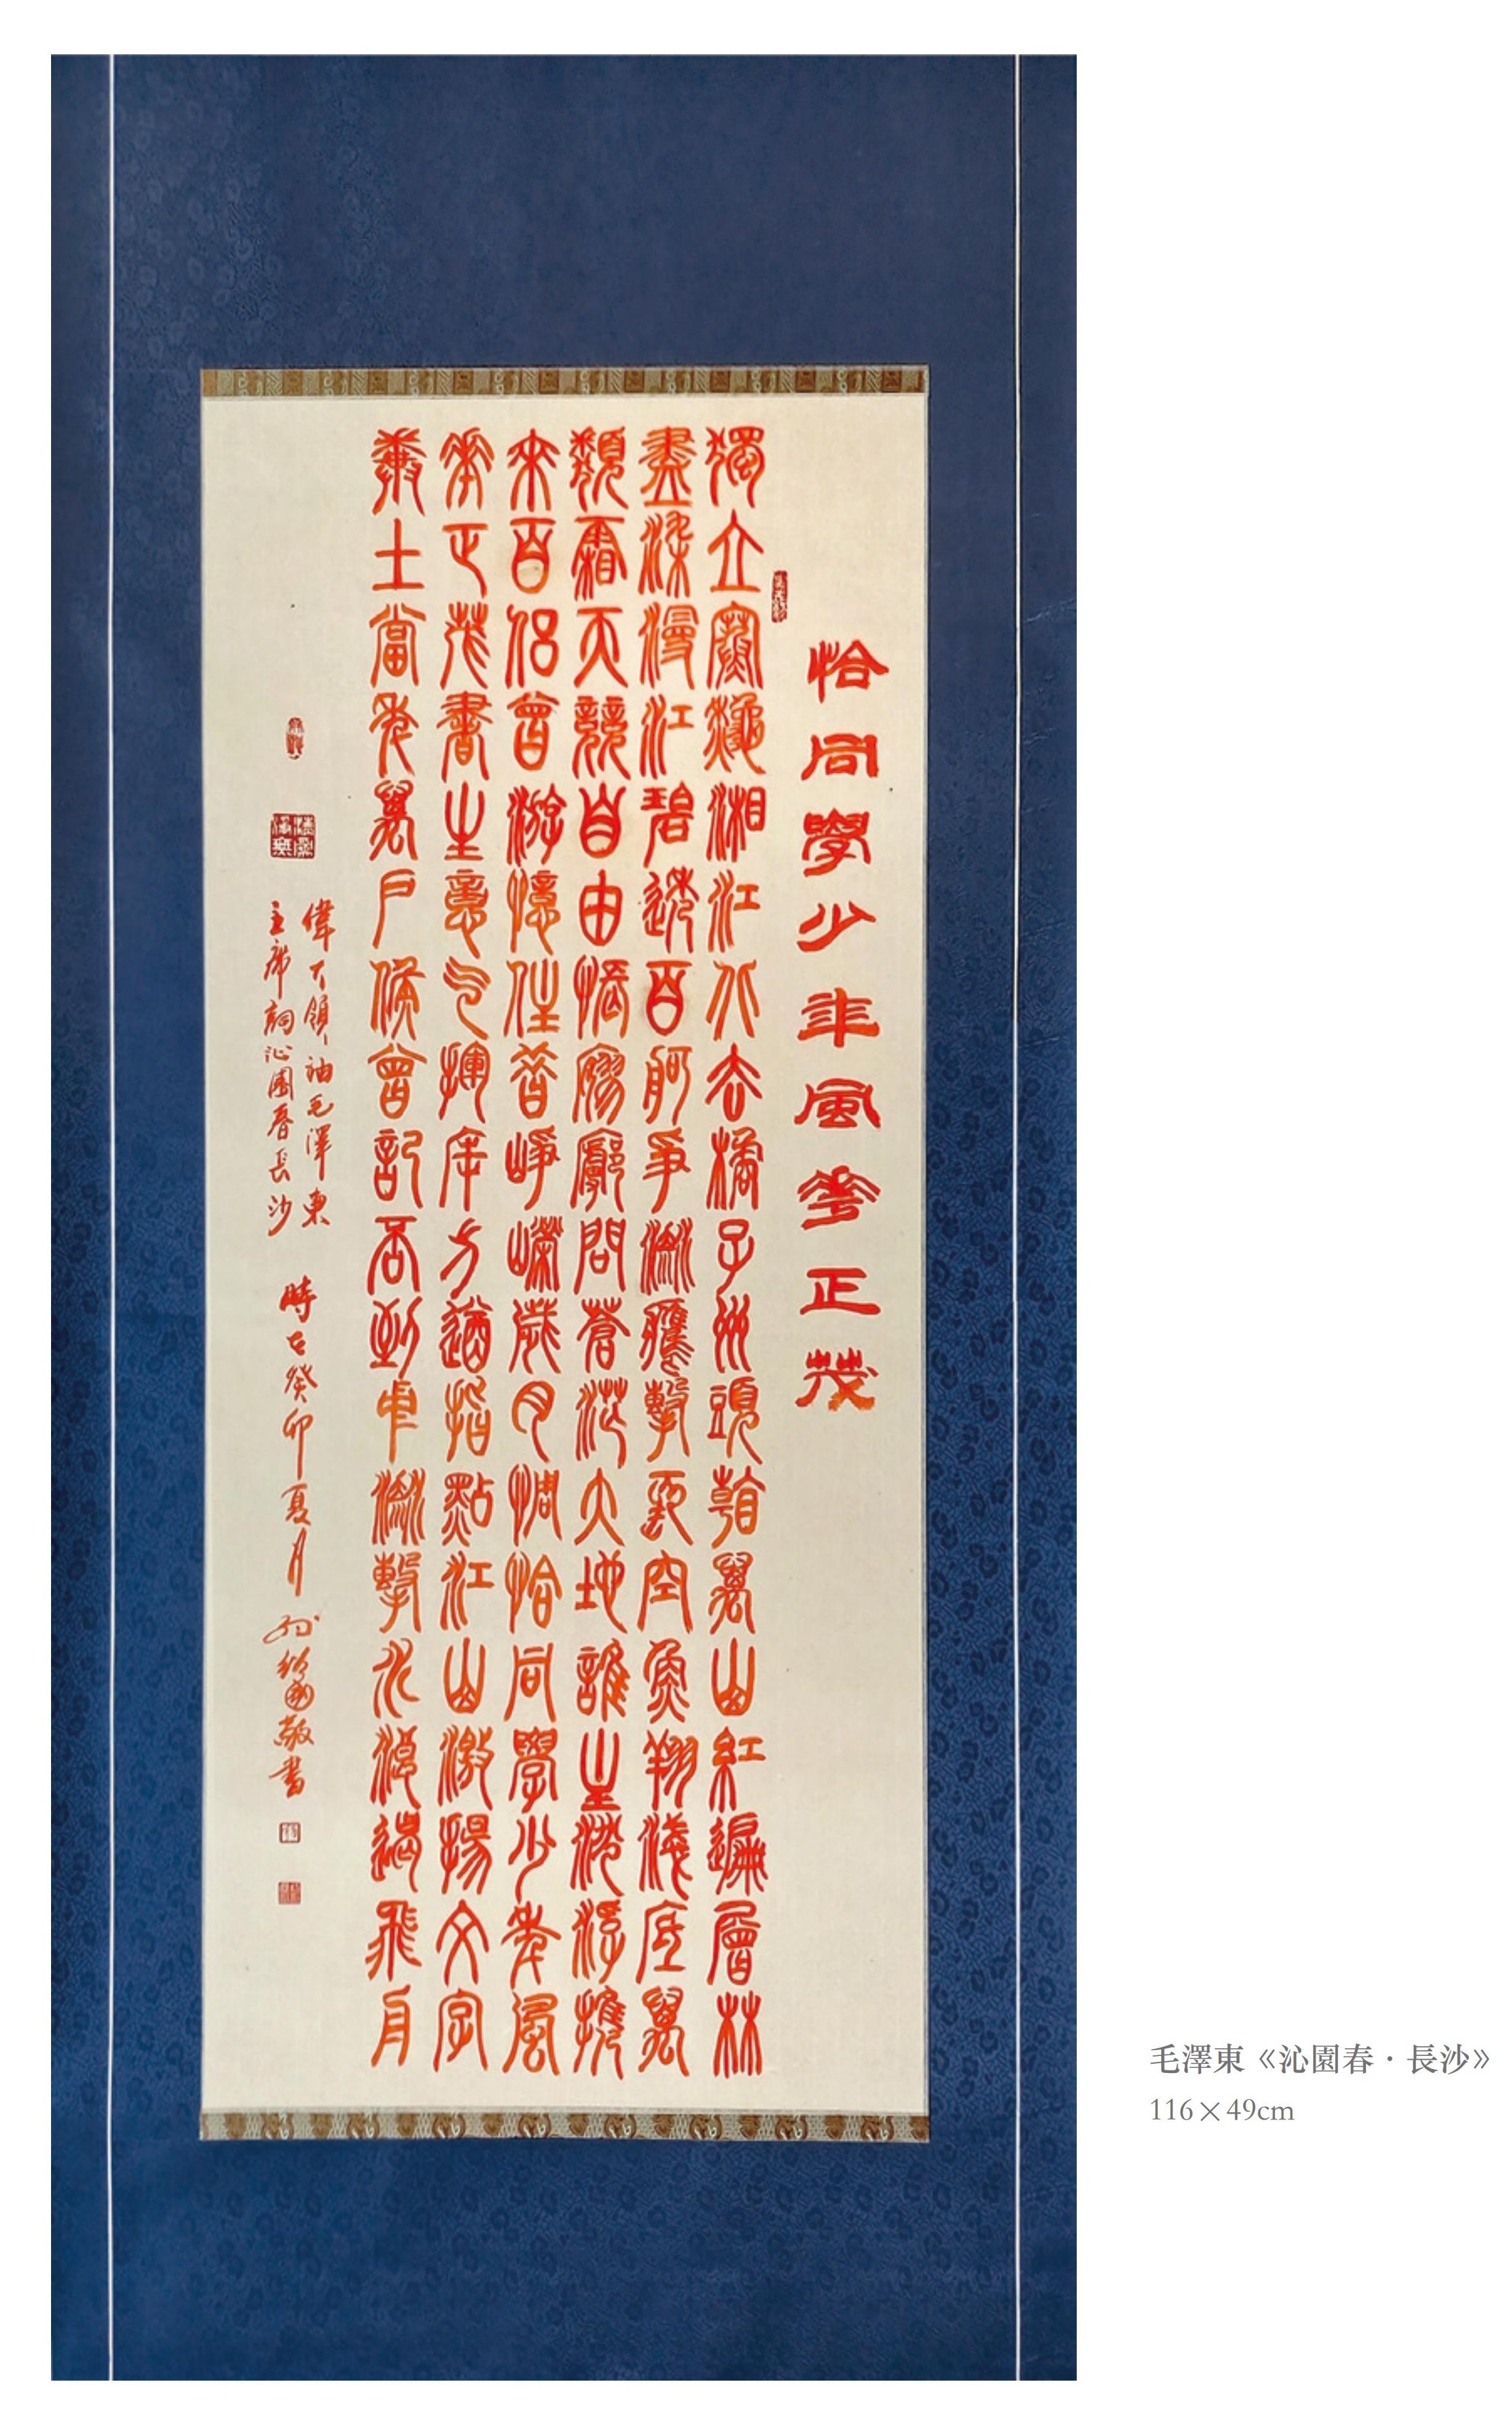 恰同學少年風華正茂
獨立寒秋湘江北去橘子洲頭看萬山紅遍層林
盡染漫江碧透百舸爭流鷹擊長空魚翔淺底萬
類霜天競自由悵寥廓問蒼茫大地誰主沉浮攜
來百侶曾游憶往昔崢嶸歲月稠恰同學少年風
華正茂書生意氣揮斥方遒指點江山激揚文字
糞土當年萬戶侯曾記否到中流擊水浪遏飛舟
偉大領袖毛澤東
主席詞沁園春長沙
時在癸卯夏月 國敬書
毛澤東《沁園春·長沙》
116×49cm